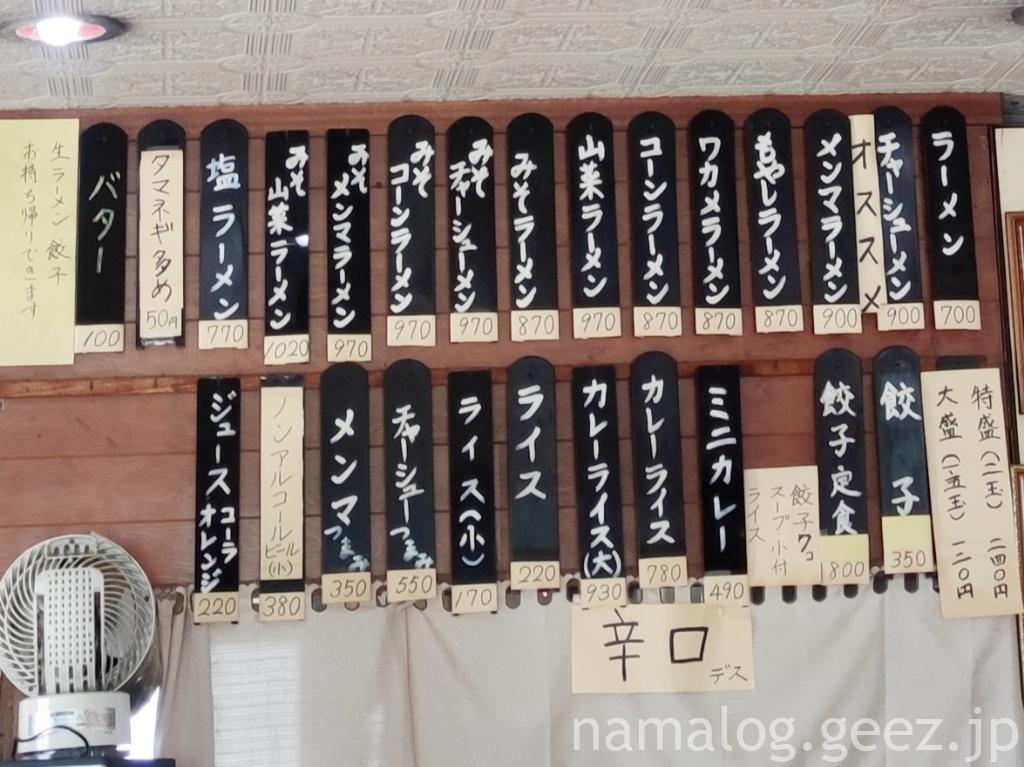 ラーメン
700
チャーシューメン
900
オススメ
メンマラーメン
900
もやしラーメン
870
ワカメラーメン
870
コーンラーメン
870
山菜ラーメン
970
みそラーメン
870
みそ
チャーシューメン
970
みそ
コーンラーメン
970
みそ
メンマラーメン
970
みそ
山菜ラーメン
1020
塩ラーメン
770
タマネギ多め
50円
バター
100
生ラーメン餃子
お持ち帰りできます
特盛(二玉) 二四〇円
大盛(一、五玉) 一二〇円
餃子
350
餃子定食
800
餃子7コ
スープ・小付
ライス
ミニカレー
490
カレーライス
780
カレーライス(大)
930
辛口
デス
ライス
220
ライス(小)
170
チャーシューつまみ
550
メンマつまみ
350
ノンアルコールビール(小)
380
ジュース
コーラ
オレンジ
220
namalog.geez.jp